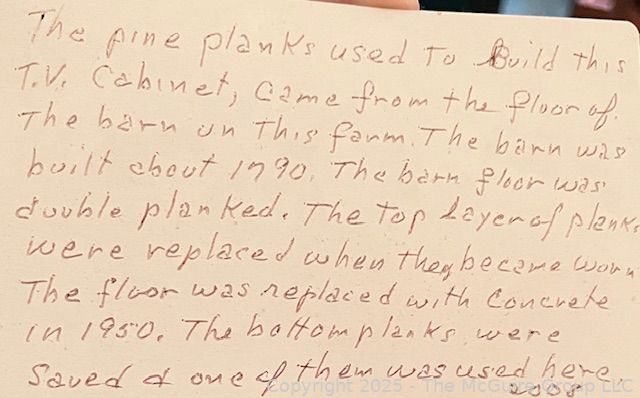 The pine planks used To Build this
T.V. Cabinet, came from the floor of
The barn on This farm. The barn was
built about 1790. The barn floor was
double planked. The Top layer of planks
were replaced when they became worn
The floor was replaced with Concrete
in 1950. The bottom planks were
Saved & one of them was used here.
2008
Copyright 2025 - The McGuire Group LLC